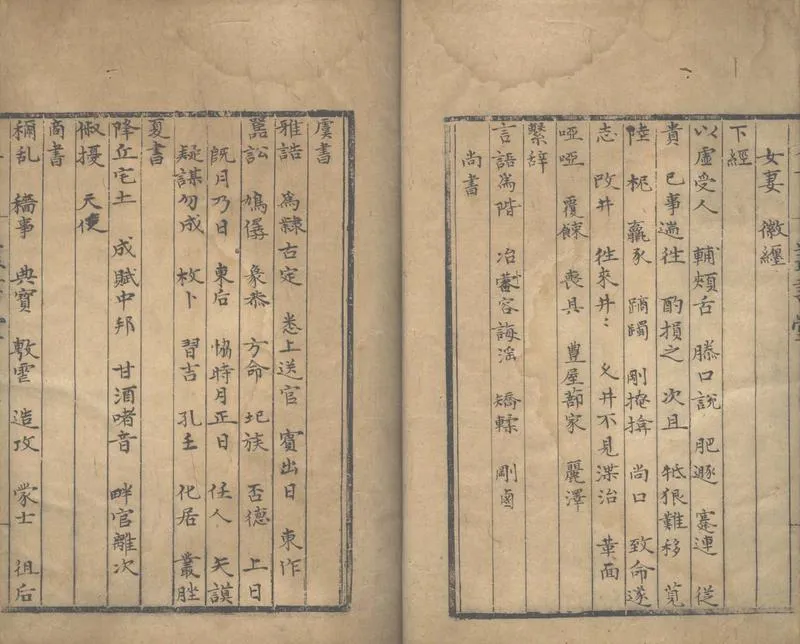 女妻 徽纆
下經
以虛受人 輔頰舌 滕口說 肥遯 蹇連 從
貴 已事遄往 酌損之 次且 牴狠難移 莧
陸 柅 羸豕 蹢躅 剛掩揜 尚口 致命遂
志 改井 往來井〻 乂井不見渫治 革面
啞啞 覆餗 喪具 豊屋蔀家 麗澤
繫辞
言語爲階 冶容誨滛 矯輮 剛鹵
尚書
虞書
雅誥 爲隸古定 悉上送官 賓出日 東作
嚚訟 鳩僝 象恭 方命 圯族 否德 上日
旣月乃日 東后 恊時月正日 任人 矢謨
疑謀勿成 枚卜 習吉 孔壬 化居 叢脞
夏書
降丘宅土 成賦中邦 甘酒嗜音 畔官離次
俶擾 天使
商書
禰乱 穡事 典寶 敷虐 造攻 蒙士 徂后